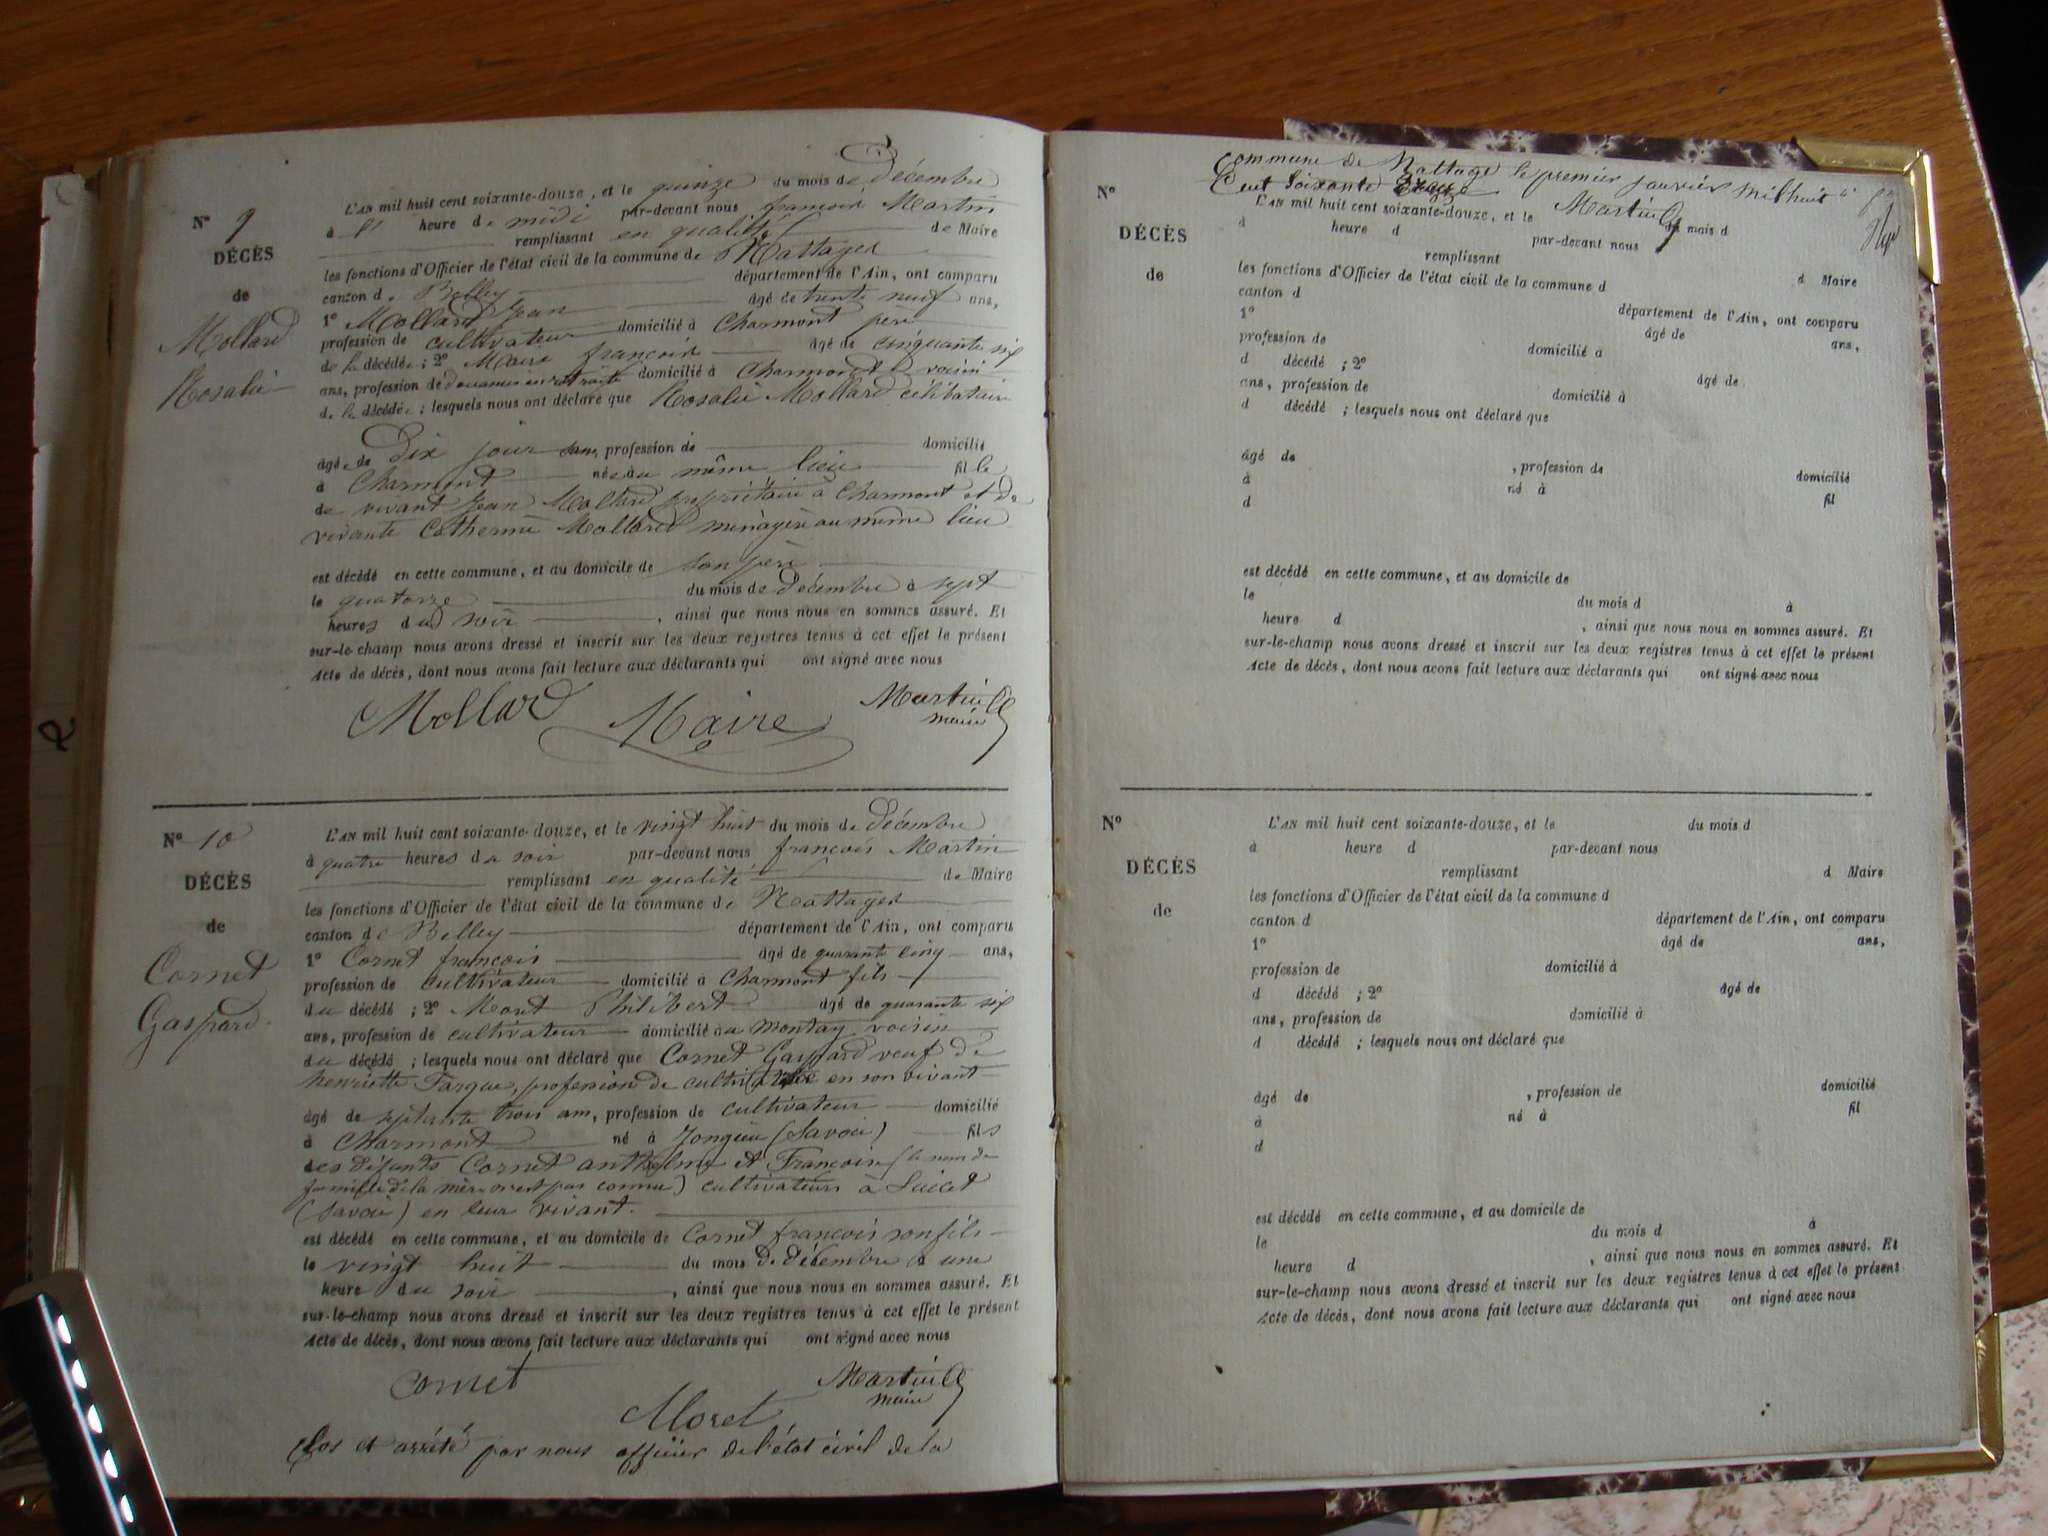 N° 9
DÉCÈS
de
Mollard
Rosalie
L'AN mil huit cent soixante-douze, et le quinze du mois de Décembre
à heure de midi par-devant nous françois Martin
remplissant en qualité de Maire
les fonctions d'Officier de l'état civil de la commune de Nattages
canton de Belley département de l'Ain, ont comparu
1° Mollard Jean âgé de trente neuf ans,
profession de cultivateur domicilié à Charmont père
de la décédée ; 2° Maire françois âgé de cinquante six
ans, profession de douanier en retraite domicilié à Charmont voisin
de la décédée ; lesquels nous ont déclaré que Rosalie Mollard célibataire
âgée de Dix jour sans profession de domicilié
à Charmont née au même lieu fille
de vivant Jean Mollard propriétaire à Charmont et de
vivante Catherine Mollard ménagère au même lieu
est décédé en cette commune, et au domicile de son père
le quatorze du mois de décembre à sept
heures du soir , ainsi que nous nous en sommes assuré. Et
sur-le-champ nous avons dressé et inscrit sur les deux registres tenus à cet effet le présent
Acte de décès, dont nous avons fait lecture aux déclarants qui ont signé avec nous
Mollard Maire Martin
maire
N° 10
DÉCÈS
de
Cornet
Gaspard
L'AN mil huit cent soixante-douze, et le vingt huit du mois de Décembre
à quatre heures du soir par-devant nous françois Martin
remplissant en qualité de Maire
les fonctions d'Officier de l'état civil de la commune de Nattages
canton de Belley département de l'Ain, ont comparu
1° Cornet françois âgé de quarante cinq ans,
profession de cultivateur domicilié à Charmont fils
du décédé ; 2° Moret Philibert âgé de quarante six
ans, profession de cultivateur domicilié au Montay voisin
du décédé ; lesquels nous ont déclaré que Cornet Gaspard veuf de
henriette Pargue, profession de cultivateur en son vivant
âgé de septante trois ans, profession de cultivateur domicilié
à Charmont né à Jongieu (Savoie) fils
des défunts Cornet anthelme et Françoise (le nom de
famille de la mère n'est pas connu) cultivateurs à Lucet
(Savoie) en leur vivant.
est décédé en cette commune, et au domicile de Cornet françois son fils
le vingt huit du mois de décembre à une
heure du soir , ainsi que nous nous en sommes assuré. Et
sur-le-champ nous avons dressé et inscrit sur les deux registres tenus à cet effet le présent
Acte de décès, dont nous avons fait lecture aux déclarants qui ont signé avec nous
Cornet Moret Martin
maire
Clos et arrêté par nous officier de l'état civil de la
Commune de Nattage le premier janvier mil huit
Cent Soixante Treize
Martin
N°
DÉCÈS
de
L'AN mil huit cent soixante-douze, et le du mois d
à heure d par-devant nous
remplissant d Maire
les fonctions d'Officier de l'état civil de la commune d
canton d département de l'Ain, ont comparu
1° âgé de ans,
profession de domicilié à
d décédé ; 2° âgé de
ans, profession de domicilié à
d décédé ; lesquels nous ont déclaré que
âgé de , profession de domicilié
à né à fil
d
est décédé en cette commune, et au domicile de
le du mois d à
heure d , ainsi que nous nous en sommes assuré. Et
sur-le-champ nous avons dressé et inscrit sur les deux registres tenus à cet effet le présent
Acte de décès, dont nous avons fait lecture aux déclarants qui ont signé avec nous
N°
DÉCÈS
de
L'AN mil huit cent soixante-douze, et le du mois d
à heure d par-devant nous
remplissant d Maire
les fonctions d'Officier de l'état civil de la commune d
canton d département de l'Ain, ont comparu
1° âgé de ans,
profession de domicilié à
d décédé ; 2° âgé de
ans, profession de domicilié à
d décédé ; lesquels nous ont déclaré que
âgé de , profession de domicilié
à né à fil
d
est décédé en cette commune, et au domicile de
le du mois d à
heure d , ainsi que nous nous en sommes assuré. Et
sur-le-champ nous avons dressé et inscrit sur les deux registres tenus à cet effet le présent
Acte de décès, dont nous avons fait lecture aux déclarants qui ont signé avec nous